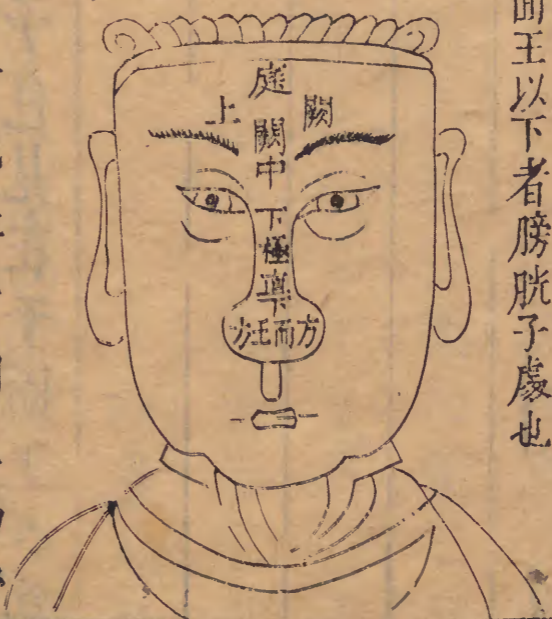 面王以下者膀胱子處也
庭
闕上
闕中
下極
直下
方而王方